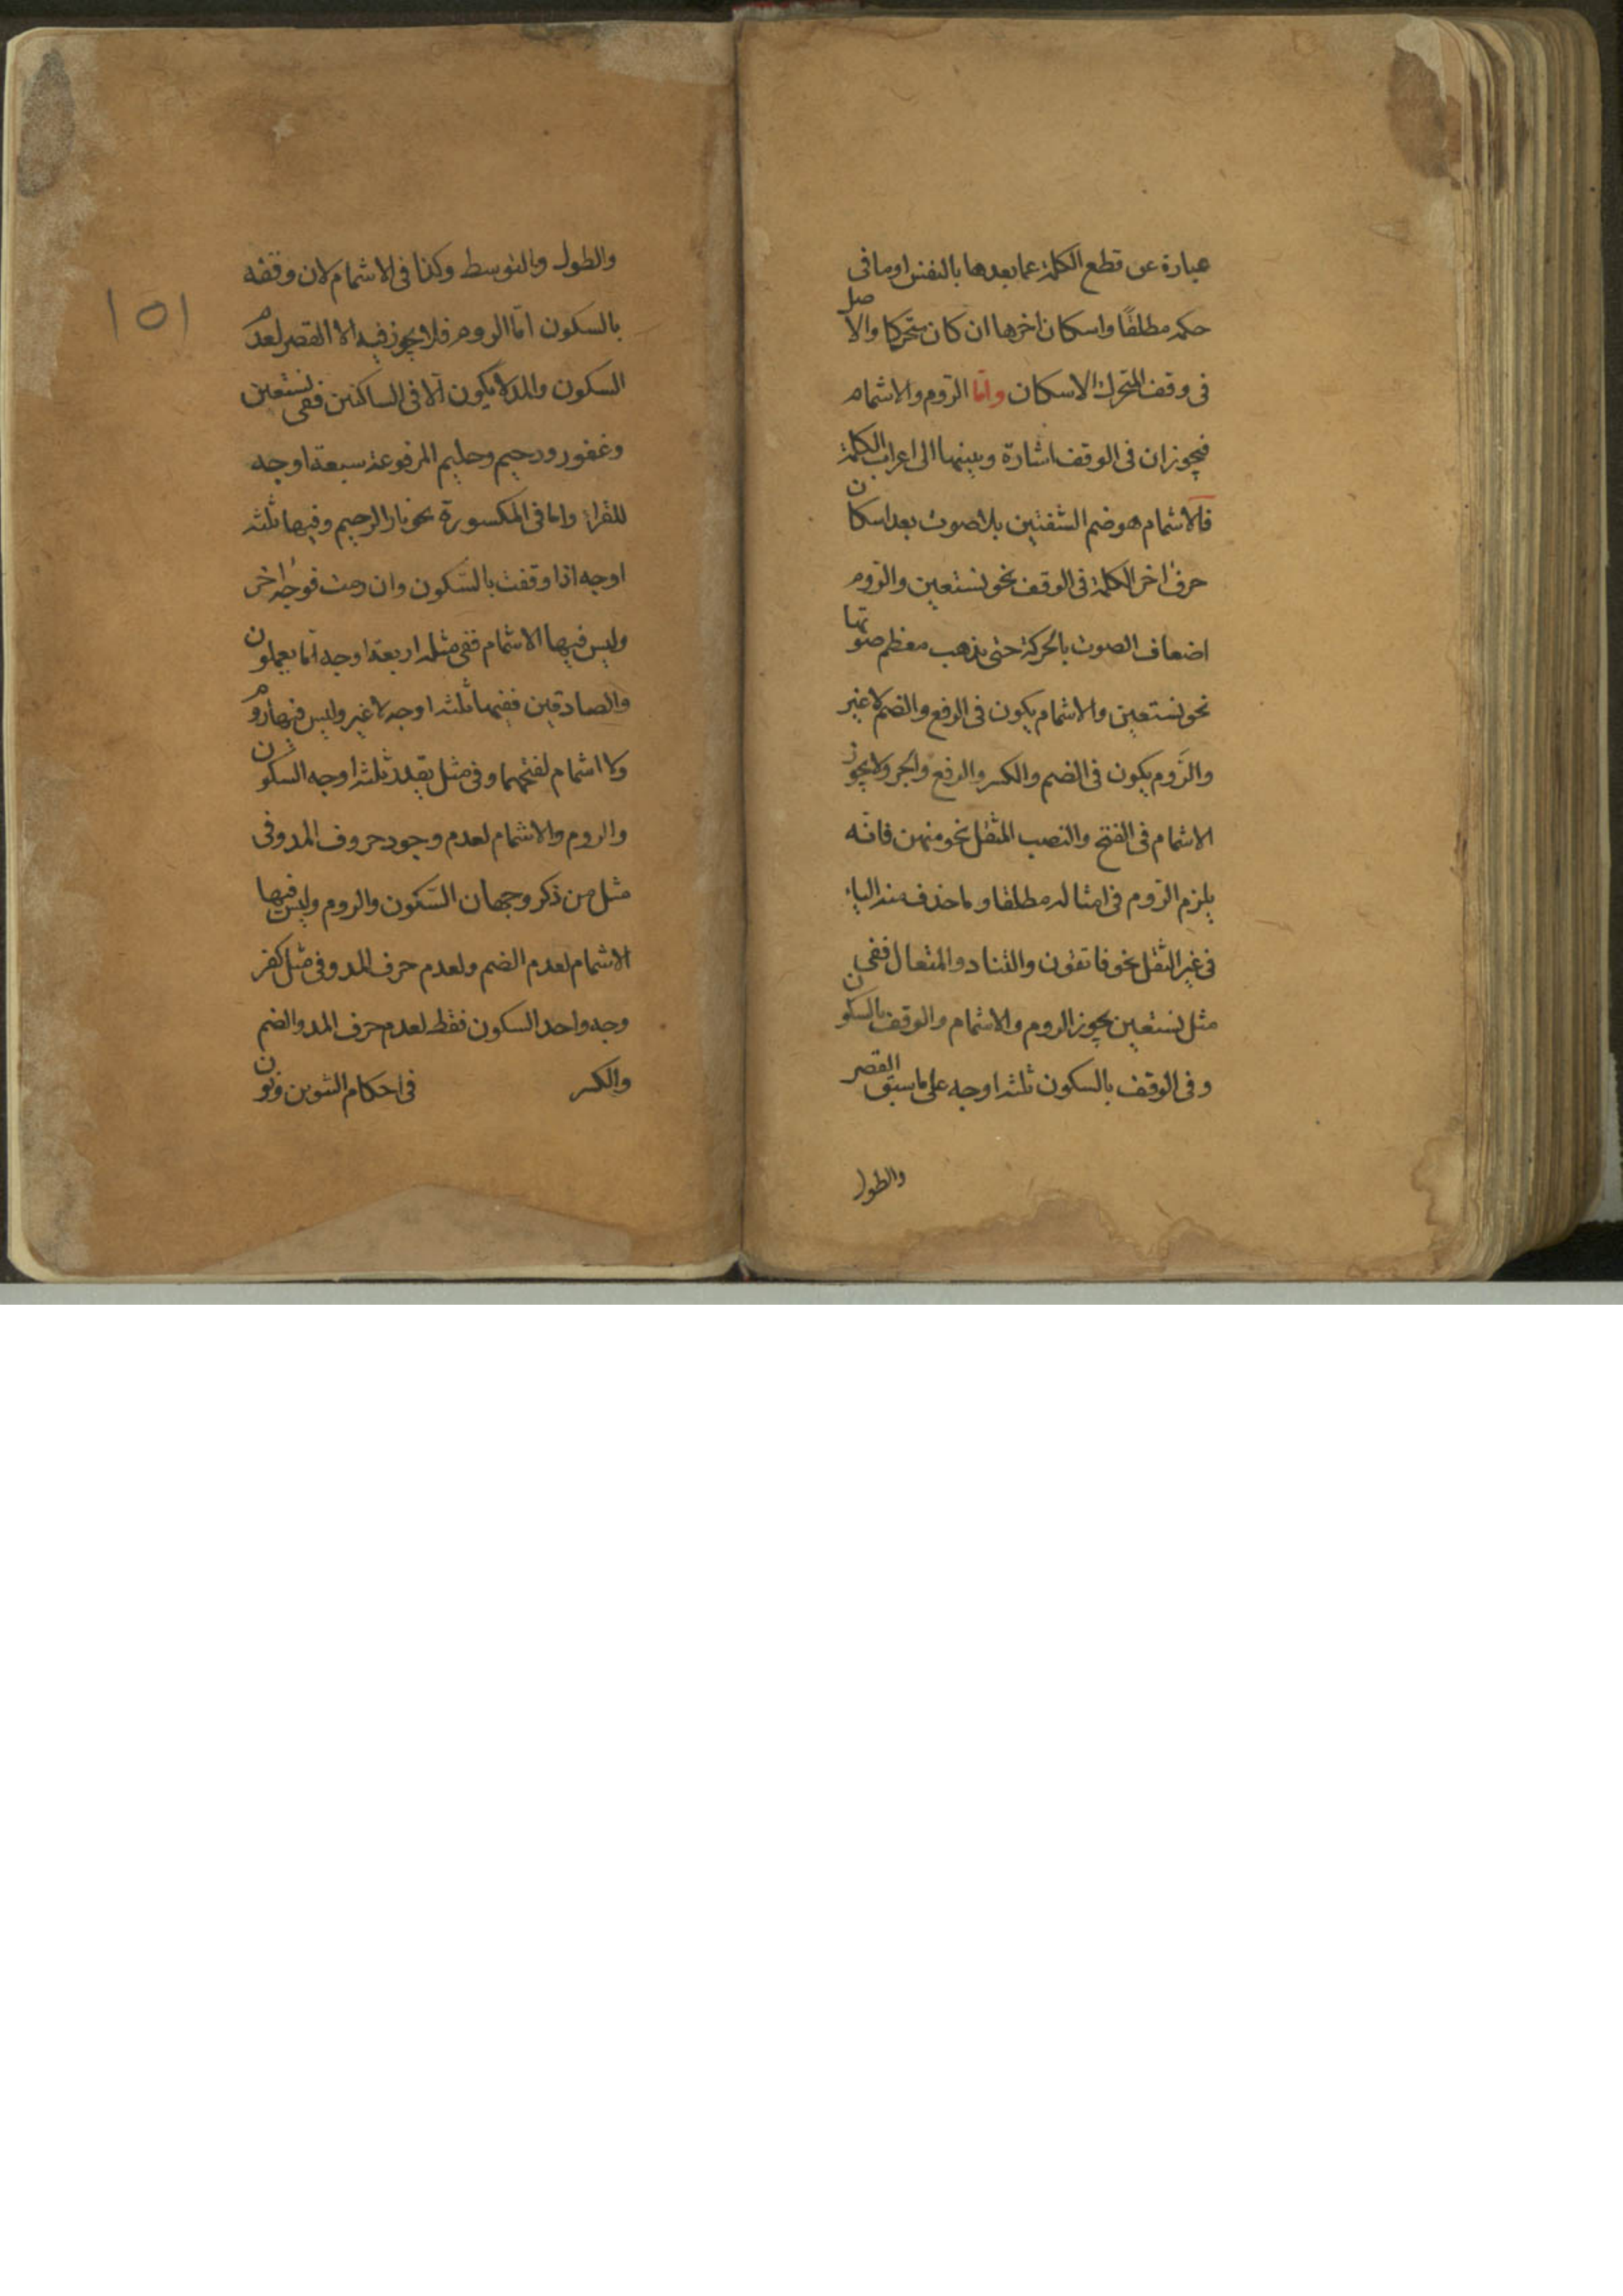 عبارة عن قطع الكلمة عما بعدها بالنفس او ما فى
حكمه مطلقًا واسكان اخرها ان كان متحركا والاصل
فى وقف المتحرك الاسكان وامّا الرّوم والاشمام
فيجوزان فى الوقف اشارة وبينهما الى اعراب الكلمة
فالاشمام هو ضم الشفتين بلا صوت بعد اسكان
حرف اخر الكلمة فى الوقف نحو نستعين والرّوم
اضعاف الصوت بالحركة حتى يذهب معظم صوتها
نحو نستعين والاشمام يكون فى الرفع والضم لا غير
والرَّوم يكون فى الضم والكسر والرفع والجر ولا يجوز
الاشمام فى الفتح والنصب المثقل نحو منهن فانّه
يلزم الرّوم فى امثاله مطلقا وما حذف منه الياء
فى غير الثقل نحو فاتقون والتناد والمتعال ففى
مثل نستعين يجوز الروم والاشمام والوقف بالسكون
وفى الوقف بالسكون ثلثة اوجه على ما سبق القصر
والطول
والطول والتوسط وكذا فى الاشمام لان وقفه
بالسكون امّا الروم فلا يجوز فيه الا القصر لعدم
السكون والمد لا يكون الّا فى الساكنين ففى نستعين
وغفور ورحيم وحليم المرفوعة سبعة اوجه
للقراء واما فى المكسورة نحو بار الرحيم وفيها ثلثة
اوجه اذا وقفت بالسّكون وان رمت فوجه اخر
وليس فيها الاشمام ففى مثله اربعة اوجه امّا يعملون
والصادقين ففيهما ثلثة اوجه لا غير وليس فيهما روم
ولا اشمام لفتحهما وفى مثل يقدر ثلثة اوجه السكون
والروم والاشمام لعدم وجود حروف المد وفى
مثل من ذكر وجهان السّكون والروم وليس فيها
الاشمام لعدم الضم ولعدم حرف المد وفى مثل كفر
وجه واحد السكون فقط لعدم حرف المد والضم
والكسر فى احكام التنوين ونون
١٥١